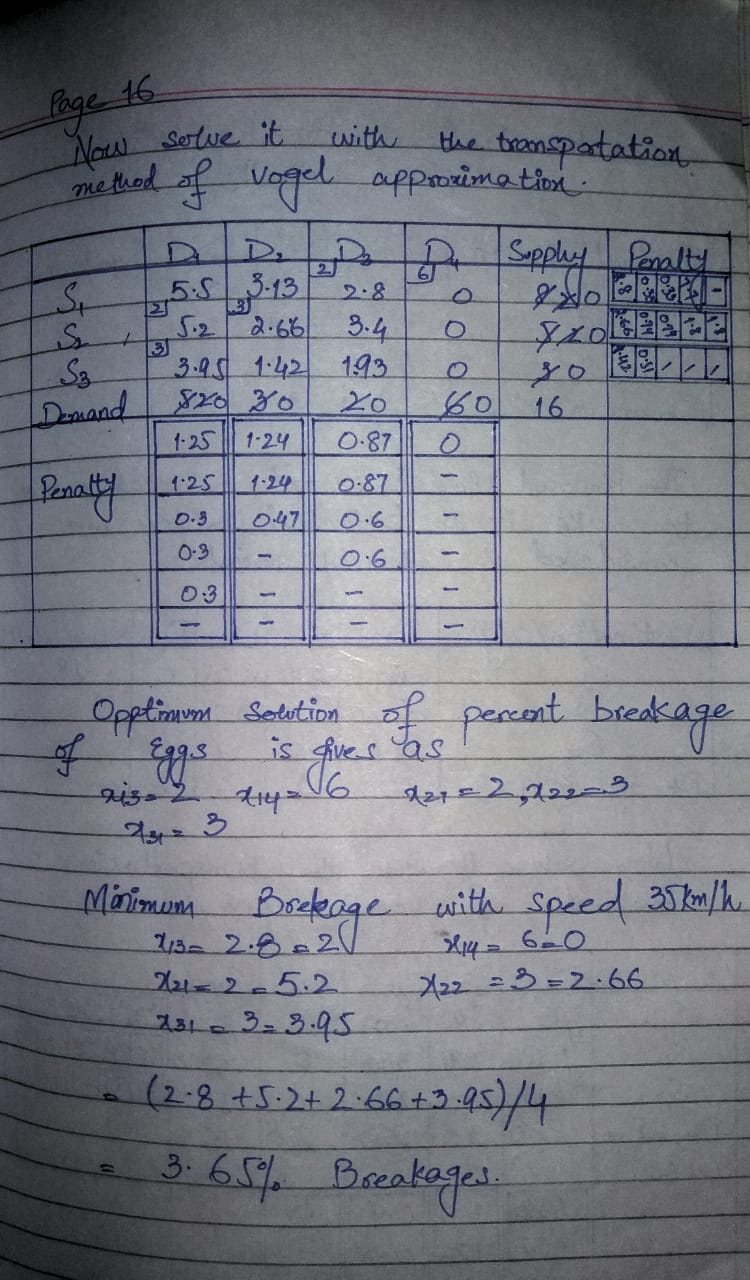 Page 16
Now solve it with the transpotation
method of vogel approximation.
D1 D2 D3 D4 Supply Penalty
S1 5.5 3.13 2 2.8 6 0 8 2 0
S2 2 5.2 3 2.66 3.4 0 5 2 0
S3 3 3.95 1.42 1.93 0 3 0
Demand 5 2 0 3 0 2 0 6 0 16
1.25 1.24 0.87 0
Penalty 1.25 1.24 0.87 -
0.3 0.47 0.6 -
0.3 - 0.6 -
0.3 - - -
- - - -
Opptimum Solution of percent breakage
of Eggs is gives as
x13 = 2 x14 = 6 x21 = 2, x22 = 3
x31 = 3
Minimum Brekage with speed 35km/h
x13 = 2.8 = 2 x14 = 6 = 0
x21 = 2 = 5.2 x22 = 3 = 2.66
x31 = 3 = 3.95
= (2.8 + 5.2 + 2.66 + 3.95)/4
= 3.65% Breakages.